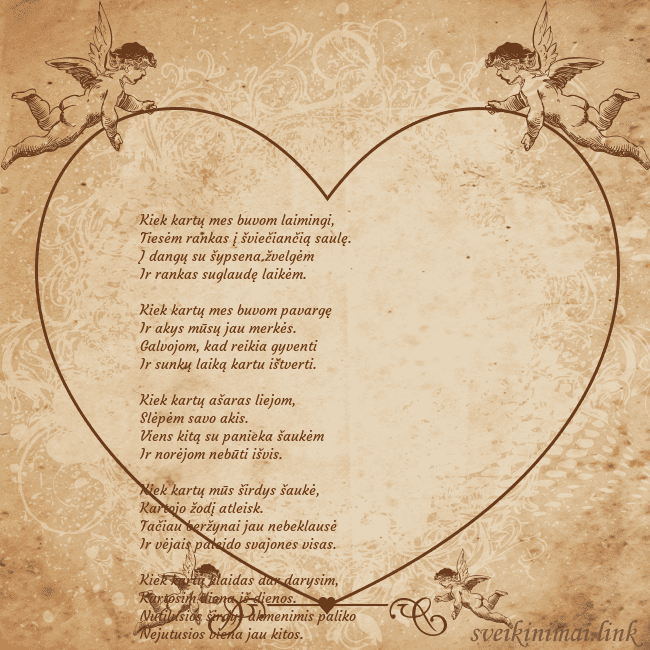 Kiek kartų mes buvom laimingi,
Tiesėm rankas į šviečiančią saulę.
Į dangų su šypsena žvelgėm
Ir rankas suglaudę laikėm.

Kiek kartų mes buvom pavargę
Ir akys mūsų jau merkės.
Galvojom, kad reikia gyventi
Ir sunkų laiką kartu ištverti.

Kiek kartų ašaras liejom,
Slėpėm savo akis.
Viens kitą su panieka šaukėm
Ir norėjom nebūti išvis.

Kiek kartų mūs širdys šaukė,
Kartojo žodį atleisk.
Tačiau beržynai jau nebeklausė
Ir vėjais paleido svajones visas.

Kiek kartų klaidas dar darysim,
Kartosim diena iš dienos.
Nutilusios širdys akmenimis paliko
Nejutusios viena jau kitos.
sveikinimai.link